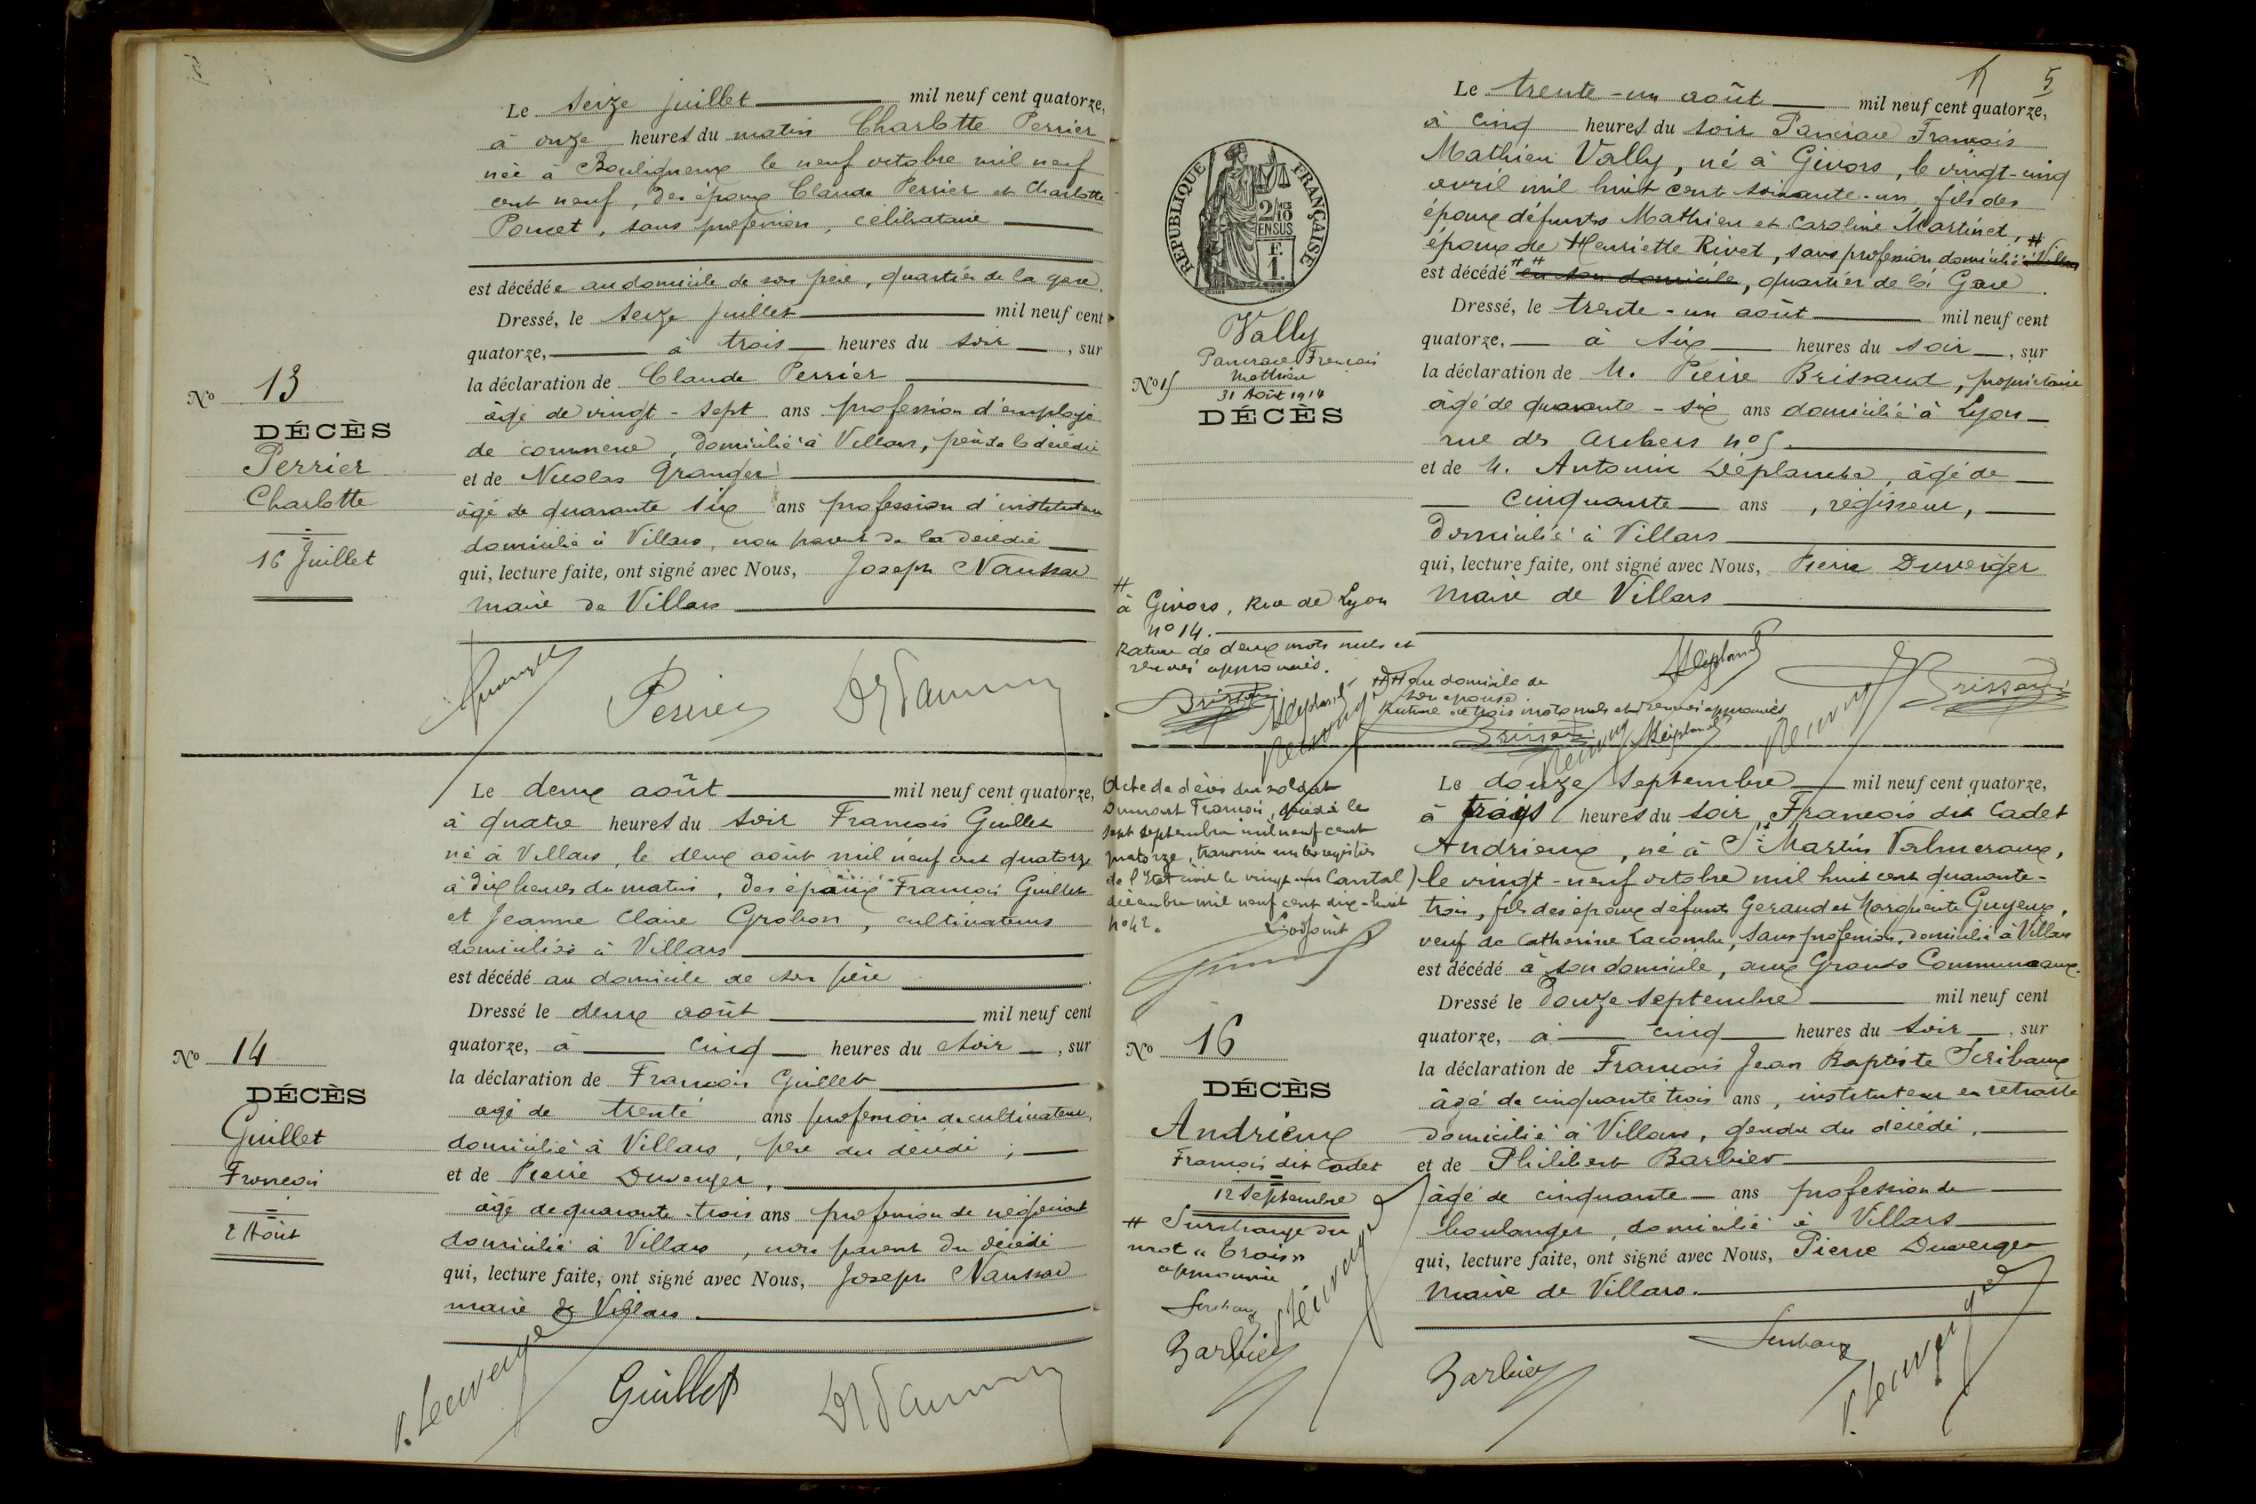 Le seize juillet mil neuf cent quatorze,
à onze heures du matin Charlotte Perrier
née à Bouligneux le neuf octobre mil neuf
cent neuf, des époux Claude Perrier et Charlotte
Poncet, sans profession, célibataire
est décédée au domicile de son père, quartier de la gare.
Dressé, le seize juillet mil neuf cent
quatorze, à trois heures du soir, sur
la déclaration de Claude Perrier
âgé de vingt-sept ans profession d'employé
de commerce, domicilié à Villars, père de la décédée
et de Nicolas Granger
âgé de quarante six ans profession d'instituteur
domicilié à Villars, non parent de la décédée
qui, lecture faite, ont signé avec Nous, Joseph
maire de Villars
No 13
DÉCÈS
Perrier
Charlotte
16 Juillet
Perrier
Le deux août mil neuf cent quatorze,
à quatre heures du soir François Guillet
né à Villars, le deux août mil neuf cent quatorze
à dix heures du matin, des époux François Guillet
et Jeanne Claire Grobon, cultivateurs
domiciliés à Villars
est décédé au domicile de son père
Dressé le deux août mil neuf cent
quatorze, à cinq heures du soir, sur
la déclaration de François Guillet
âgé de trente ans profession de cultivateur,
domicilié à Villars, père du décédé ;
et de Pierre Duverger,
âgé de quarante-trois ans profession de négociant
domicilié à Villars, non parent du décédé
qui, lecture faite, ont signé avec Nous, Joseph
maire de Villars
No 14
DÉCÈS
Guillet
François
2 Août
Guillet
5
Le trente-un août mil neuf cent quatorze,
à cinq heures du soir Pancrace François
Mathieu Vally, né à Givors, le vingt-cinq
avril mil huit cent soixante-un, fils des
époux défunts Mathieu et Caroline Martinet,
époux de Henriette Rivet, sans profession domicilié # à Villars
est décédé ## en son domicile, quartier de la Gare.
Dressé, le trente-un août mil neuf cent
quatorze, à six heures du soir, sur
la déclaration de M. Pierre Brissaud, propriétaire
âgé de quarante-six ans domicilié à Lyon
rue des Archers no 5.
et de M. Antonin Déplanche, âgé de
cinquante ans, régisseur,
domicilié à Villars
qui, lecture faite, ont signé avec Nous, Pierre Duverger
Maire de Villars
RÉPUBLIQUE FRANÇAISE
2/10 EN SUS
F. 1.
Vally
Pancrace François
Mathieu
No 15
31 Août 1914
DÉCÈS
# à Givors, Rue de Lyon
no 14.
Rature de deux mots nuls et
renvoi approuvés.
## au domicile de
son épouse.
Rature de trois mots nuls et renvoi approuvés
Acte de décès du soldat
Dumont François, décédé le
sept septembre mil neuf cent
quatorze, transcrit sur les registres
de l'Etat civil le vingt un
décembre mil neuf cent dix-huit
No 42.
L'adjoint
Le douze septembre mil neuf cent quatorze,
à trois heures du soir, François dit Cadet
Andrieux, né à St Martin Valmeroux,
(Cantal) le vingt-neuf octobre mil huit cent quarante-
trois, fils des époux défunts Geraud et Marguerite Guyeux,
veuf de Catherine Lacombe, sans profession, domicilié à Villars
est décédé à son domicile, aux Grands Communaux.
Dressé le douze septembre mil neuf cent
quatorze, à cinq heures du soir, sur
la déclaration de François Jean Baptiste Scribaux
âgé de cinquante trois ans, instituteur en retraite
domicilié à Villars, gendre du décédé,
et de Philibert Barbier
âgé de cinquante ans profession de
boulanger, domicilié à Villars
qui, lecture faite, ont signé avec Nous, Pierre Duverger
Maire de Villars.
No 16
DÉCÈS
Andrieux
François dit Cadet
12 Septembre
# Surcharge du
mot "trois"
approuvée
Barbier
Barbier